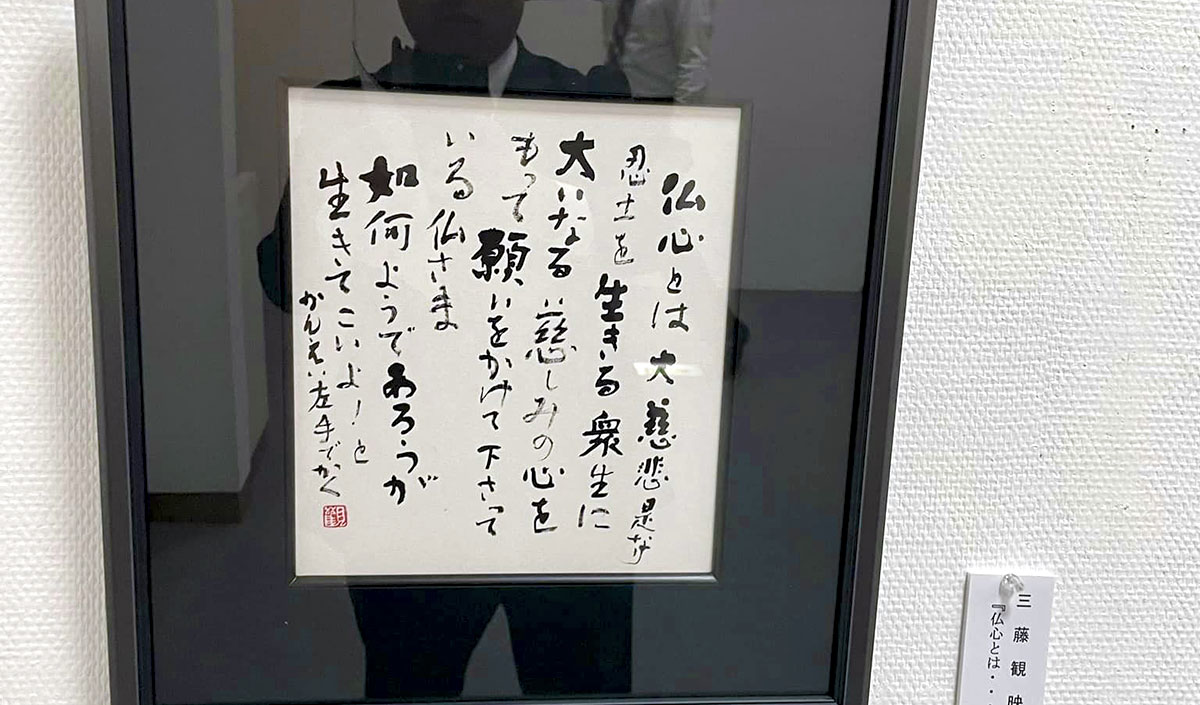 仏心とは大慈悲是なり
忍土を生きる衆生に
大いなる慈しみの心を
もって願いをかけて下さって
いる仏さま
如何ようであろうが
生きてこいよ！と
かんえい左手でかく
三藤観映
『仏心とは・・